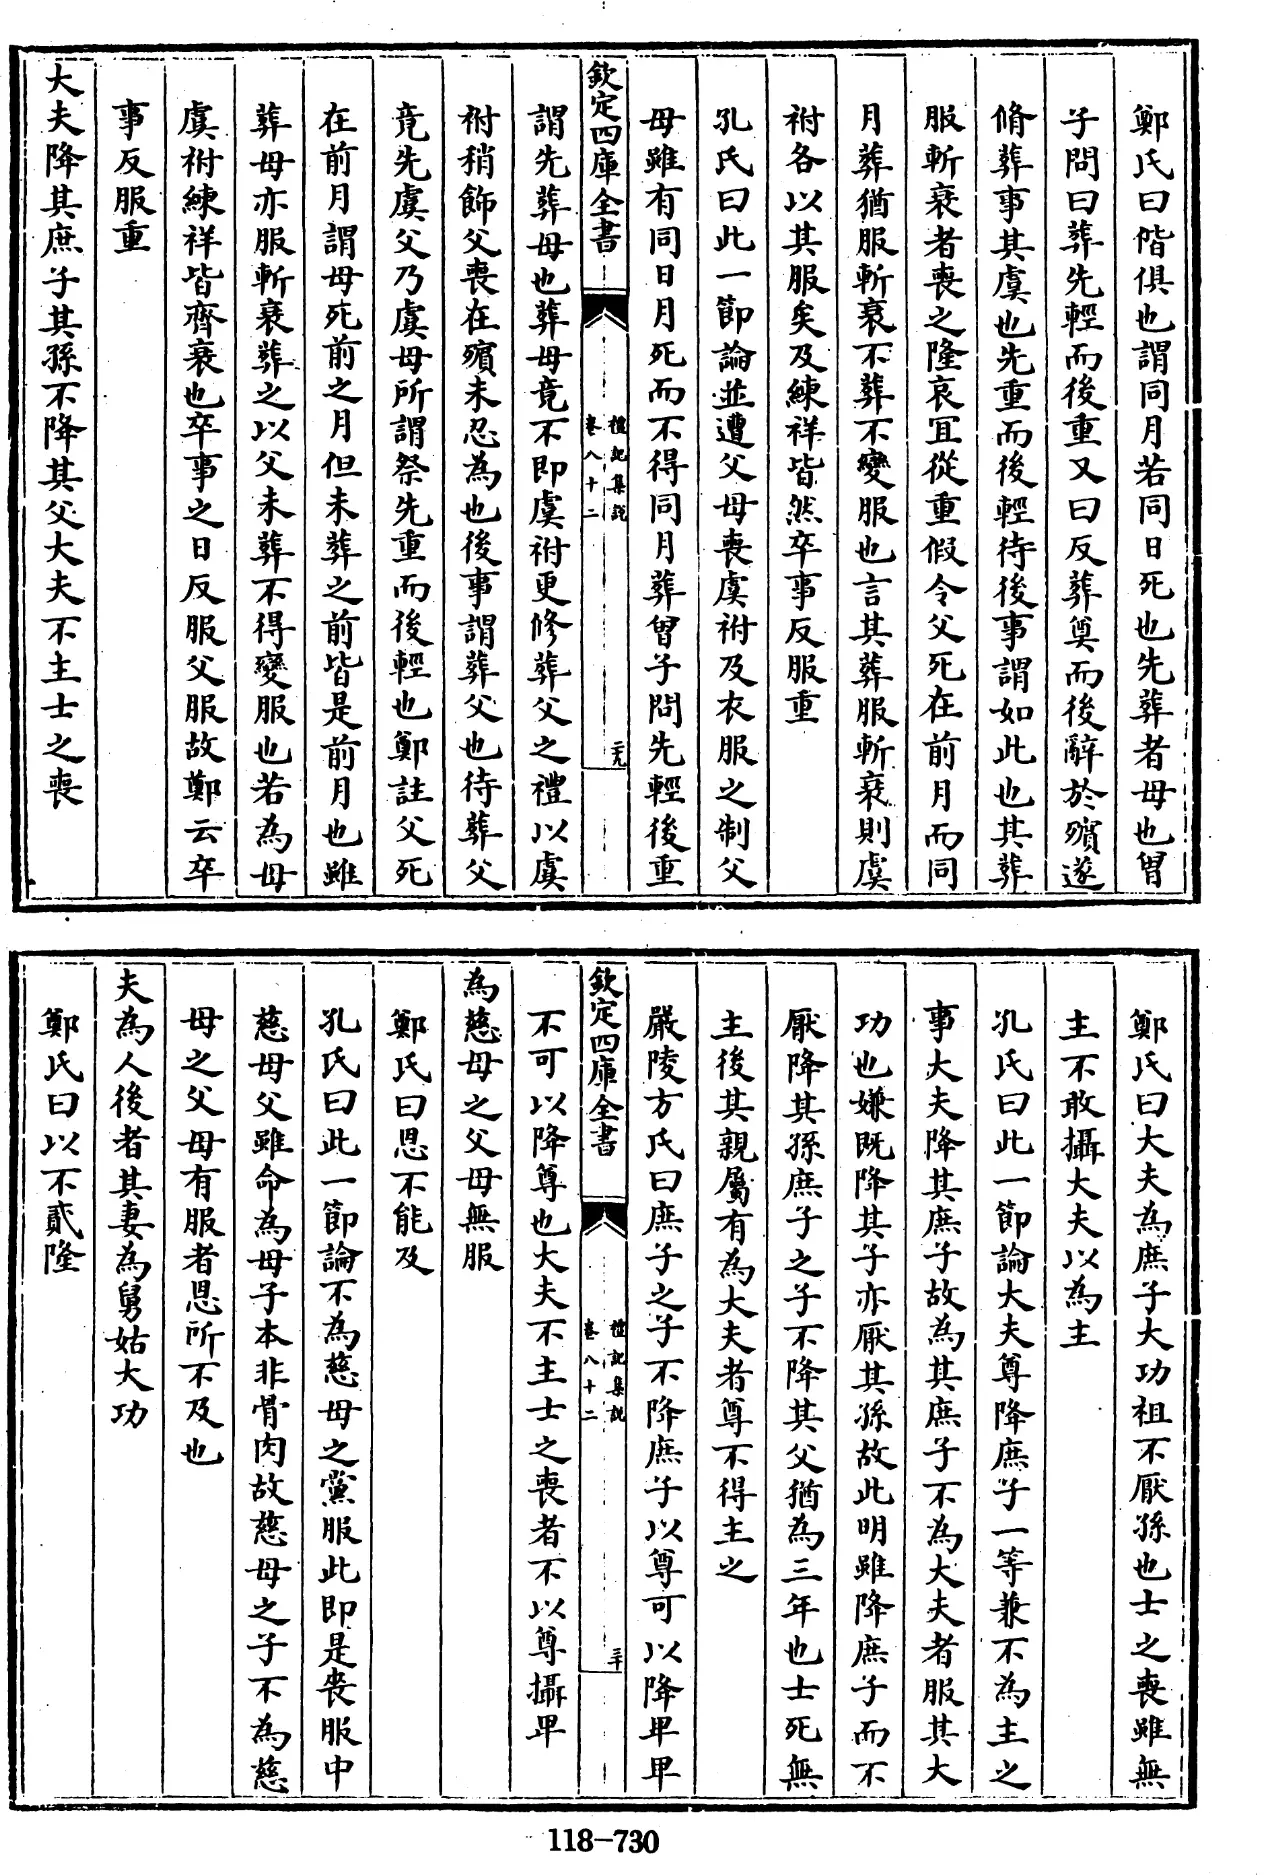 鄭氏曰偕俱也謂同月若同日死也先葬者母也曾
子問曰葬先輕而後重又曰反葬奠而後辭於殯遂
脩葬事其虞也先重而後輕待後事謂如此也其葬
服斬衰者喪之隆哀宜從重假令父死在前月而同
月葬猶服斬衰不葬不變服也言其葬服斬衰則虞
祔各以其服矣及練祥皆然卒事反服重
孔氏曰此一節論並遭父母喪虞祔及衣服之制父
母雖有同日月死而不得同月葬曾子問先輕後重
欽定四庫全書
禮記集說
卷八十二
二九
謂先葬母也葬母竟不即虞祔更修葬父之禮以虞
祔稍飾父喪在殯未忍為也後事謂葬父也待葬父
竟先虞父乃虞母所謂祭先重而後輕也鄭註父死
在前月謂母死前之月但未葬之前皆是前月也雖
葬母亦服斬衰葬之以父未葬不得變服也若為母
虞祔練祥皆齊衰也卒事之日反服父服故鄭云卒
事反服重
大夫降其庶子其孫不降其父大夫不主士之喪
鄭氏曰大夫為庶子大功祖不厭孫也士之喪雖無
主不敢攝大夫以為主
孔氏曰此一節論大夫尊降庶子一等兼不為主之
事大夫降其庶子故為其庶子不為大夫者服其大
功也嫌既降其子亦厭其孫故此明雖降庶子而不
厭降其孫庶子之子不降其父猶為三年也士死無
主後其親屬有為大夫者尊不得主之
嚴陵方氏曰庶子之子不降庶子以尊可以降卑卑
欽定四庫全書
禮記集說
卷八十二
三十
不可以降尊也大夫不主士之喪者不以尊攝卑
為慈母之父母無服
鄭氏曰恩不能及
孔氏曰此一節論不為慈母之黨服此即是喪服中
慈母父雖命為母子本非骨肉故慈母之子不為慈
母之父母有服者恩所不及也
夫為人後者其妻為舅姑大功
鄭氏曰以不貳隆
118-730